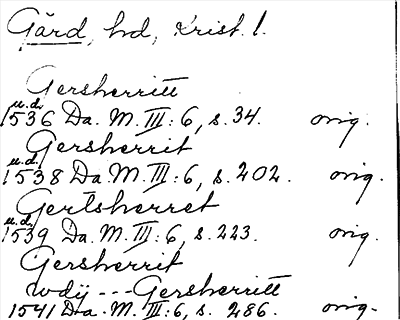 Gärd, hd, Krist. l.
Gersherritt
u.d.
1536 Da. M. III: 6, s. 34. orig.
Gersherrit
u.d.
1538 Da. M. III: 6, s. 202. orig.
Gertsherret
u.d.
1539 Da. M. III: 6, s. 223. orig.
Gersherrit
wdij --- Gersherritt
1541 Da. M. III: 6, s. 286. orig.